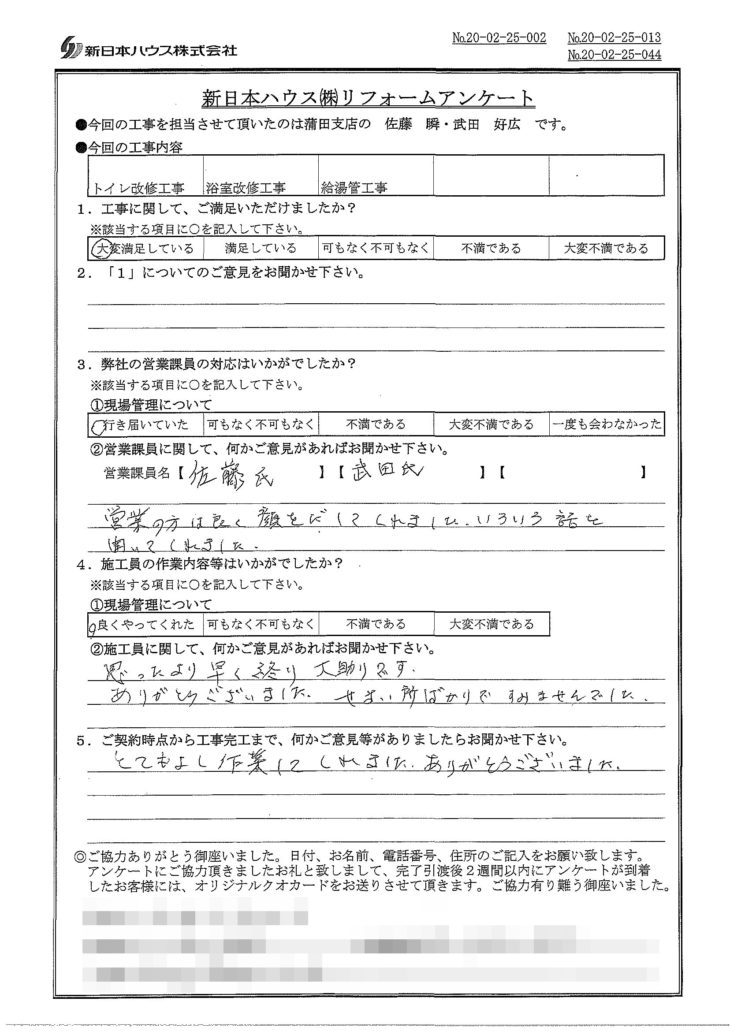 新日本ハウス株式会社
№20-02-25-002 №20-02-25-013
№20-02-25-044
新日本ハウス㈱リフォームアンケート
●今回の工事を担当させて頂いたのは蒲田支店の 佐藤 瞬・武田 好広 です。
●今回の工事内容
トイレ改修工事 浴室改修工事 給湯管工事
1．工事に関して、ご満足いただけましたか？
※該当する項目に○を記入して下さい。
大変満足している 満足している 可もなく不可もなく 不満である 大変不満である
2．「1」についてのご意見をお聞かせ下さい。
3．弊社の営業課員の対応はいかがでしたか？
※該当する項目に○を記入して下さい。
①現場管理について
行き届いていた 可もなく不可もなく 不満である 大変不満である 一度も会わなかった
②営業課員に関して、何かご意見があればお聞かせ下さい。
営業課員名【佐藤氏 】【武田氏 】【 】
営業の方は良く顔をだしてくれました。いろいろ話を
聞いてくれました。
4．施工員の作業内容等はいかがでしたか？
※該当する項目に○を記入して下さい。
①現場管理について
良くやってくれた 可もなく不可もなく 不満である 大変不満である
②施工員に関して、何かご意見があればお聞かせ下さい。
思ったより早く終り大助りです。
ありがとうございました。せまい所ばかりですみませんでした。
5．ご契約時点から工事完工まで、何かご意見等がありましたらお聞かせ下さい。
とてもよし作業してくれました。ありがとうございました。
◎ご協力ありがとう御座いました。日付、お名前、電話番号、住所のご記入をお願い致します。
アンケートにご協力頂きましたお礼と致しまして、完了引渡後2週間以内にアンケートが到着
したお客様には、オリジナルクオカードをお送りさせて頂きます。ご協力有り難う御座いました。